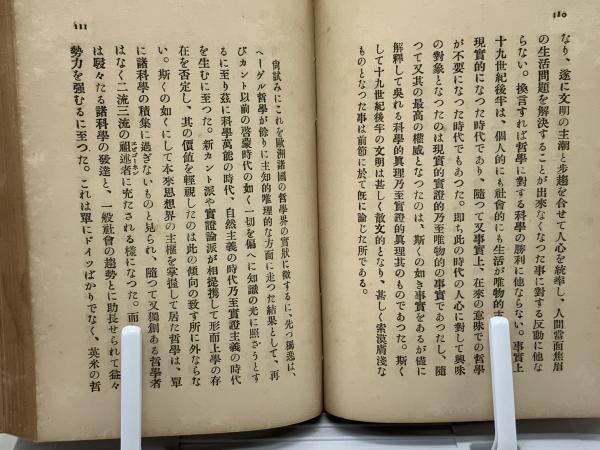 110
なり、遂に文明の主潮と步趨を合せて人心を統率し、人間當面焦眉
の生活問題を解決することが出來なくなつた事に對する反動に他な
らない。換言すれば哲學に對する科學の勝利に他ならない。事實上
十九世紀後半は、個人的にも社會的にも生活が唯物的
現實的になつた時代であり、隨つて又事實上、在來の意味での哲學
が不要になつた時代でもあつた。卽ち此の時代の人心に對して興味
の對象となつたのは現實的實證的乃至唯物的の事實であつたし、隨
つて又其の最高の權威となつたのは、斯くの如き事實をあるが儘に
解釋して吳れる科學的眞理乃至實證的眞理其のものであつた。斯く
して十九世紀後半の文明は甚しく散文的となり、甚しく索漠膚淺な
ものとなつた事は前節に於て旣に論じた所である。
111
尙試みにこれを歐洲諸國の哲學界の實狀に徵するに、先づ獨逸は、
ヘーゲル哲學が餘りに主知的唯理的な方面に走つた結果として、再
びカント以前の啓蒙時代の如く一切を偏へに知識の光に照さうとす
るに至り茲に科學萬能の時代、自然主義の時代乃至實證主義の時代
を生むに至つた。新カント派や實證論派が相提携して形而上學の存
在を否定し、其の價値を輕視したのは此の傾向の致す所に外ならな
い。斯くの如くにして本來思想界の主權を掌握して居た哲學は、單
に諸科學の積集に過ぎないものと見られ、隨つて又獨創ある哲學者
はなく二流三流の祖述者に充たされる樣になつた。而
は駸々たる諸科學の發達と、一般社會の趨勢とに助長せられて益々
勢力を强むるに至つた。これは單にドイツばかりでなく、英米の哲